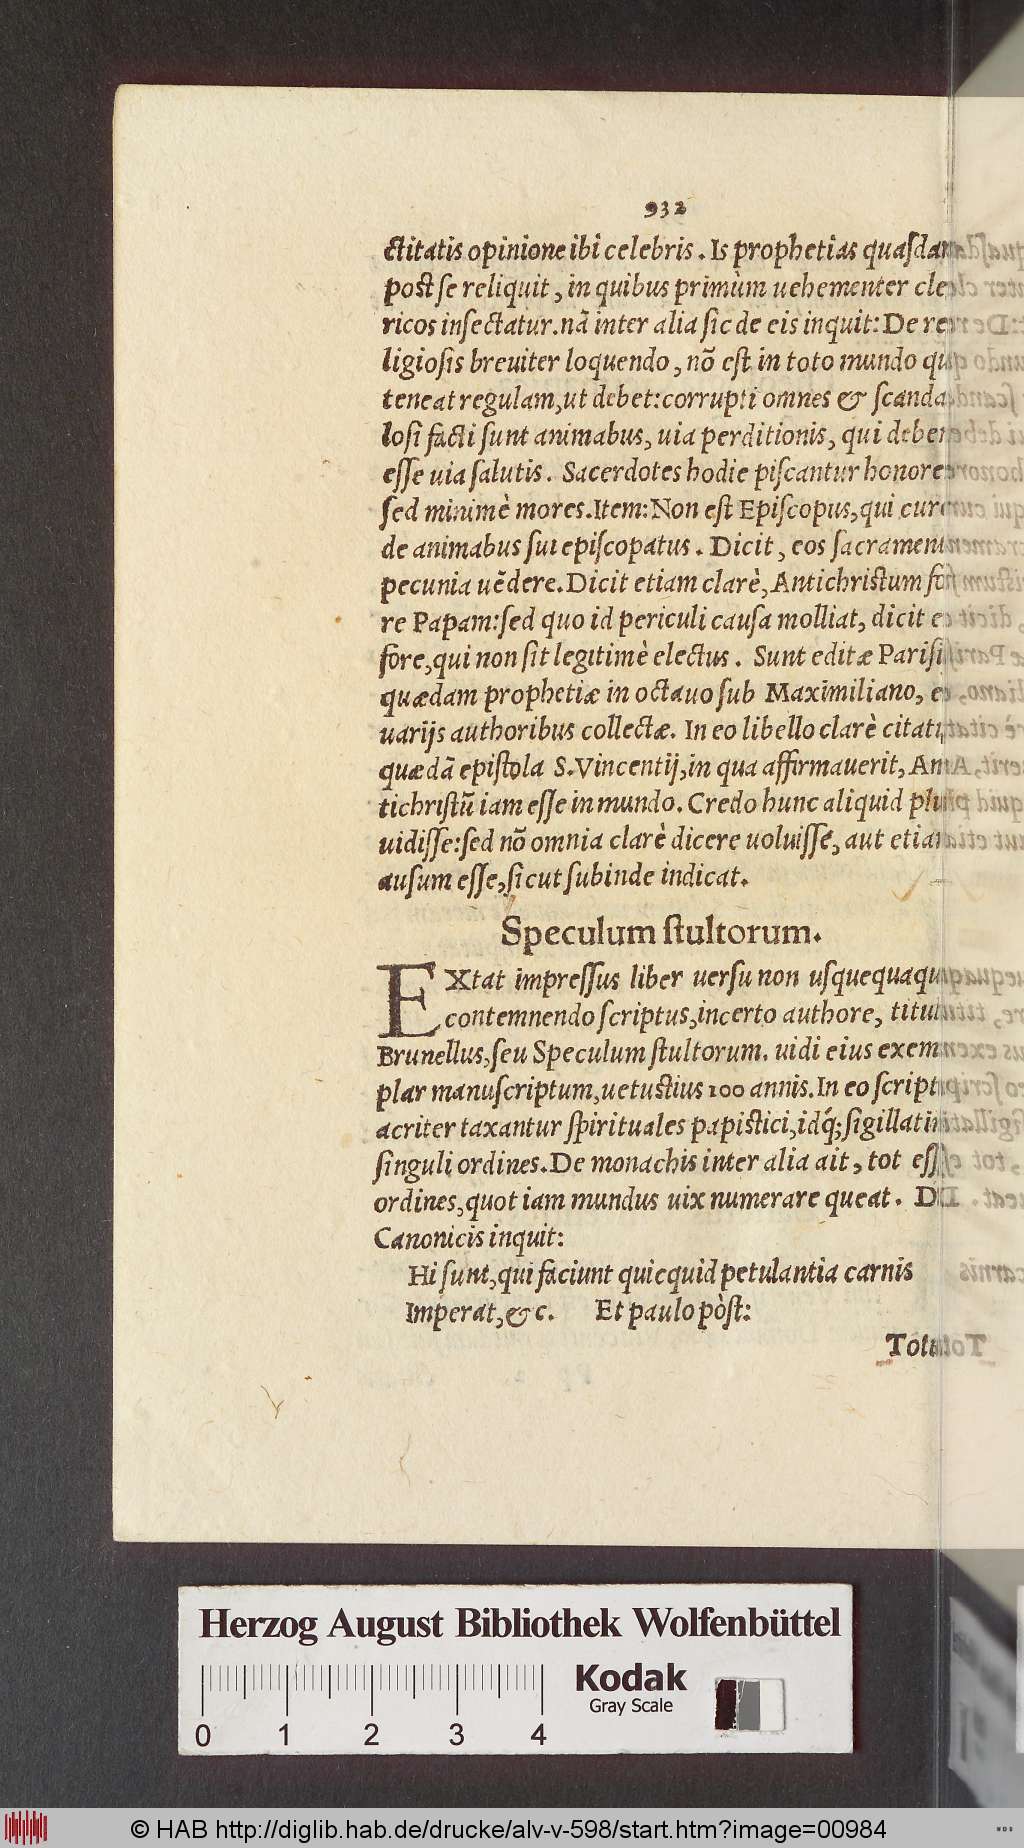 932
ctitatis opinione ibi celebris. Is prophetias quasdam
post se reliquit, in quibus primùm uehementer cle
ricos insectatur. nā inter alia sic de eis inquit: De re
ligiosis breuiter loquendo, nō est in toto mundo qui
teneat regulam, ut debet: corrupti omnes & scanda
losi facti sunt animabus, uia perditionis, qui deberent
esse uia salutis. Sacerdotes hodie piscantur honores
sed minimè mores. Item: Non est Episcopus, qui curet
de animabus sui episcopatus. Dicit, eos sacramenta
pecunia uēdere. Dicit etiam clarè, Antichristum fo
re Papam: sed quo id periculi causa molliat, dicit
fore, qui non sit legitimè electus. Sunt editæ Parisijs
quædam prophetiæ in octauo sub Maximiliano, ex
uarijs authoribus collectæ. In eo libello clarè citatur
quædā epistola S. Vincentij, in qua affirmauerit, An
tichristū iam esse in mundo. Credo hunc aliquid plus
uidisse: sed nō omnia clarè dicere uoluisse, aut etiam
ausum esse, sicut subinde indicat.
Speculum stultorum.
EXtat impressus liber uersu non usquequaque
contemnendo scriptus, incerto authore, titulus
Brunellus, seu Speculum stultorum. uidi eius exem
plar manuscriptum, uetustius 100 annis. In eo scripto
acriter taxantur spirituales papistici, idq́; sigillatim
singuli ordines. De monachis inter alia ait, tot esse
ordines, quot iam mundus uix numerare queat. De
Canonicis inquit:
Hi sunt, qui faciunt quicquid petulantia carnis
Imperat, &c. Et paulo pòst:
Herzog August Bibliothek Wolfenbüttel
Kodak
Gray Scale
0 1 2 3 4
© HAB http://diglib.hab.de/drucke/alv-v-598/start.htm?image=00984